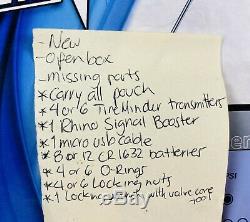 - New
- Open box
- missing parts
* Carry all pouch
* 4 or 6 TireMinder transmitters
* 1 Rhino Signal Booster
* 1 micro usb cable
* 8 or 12 CR1632 batteries
* 4 or 6 O-Rings
* 4 or 6 Locking nuts
* 1 Locking wrench with valve core
tool